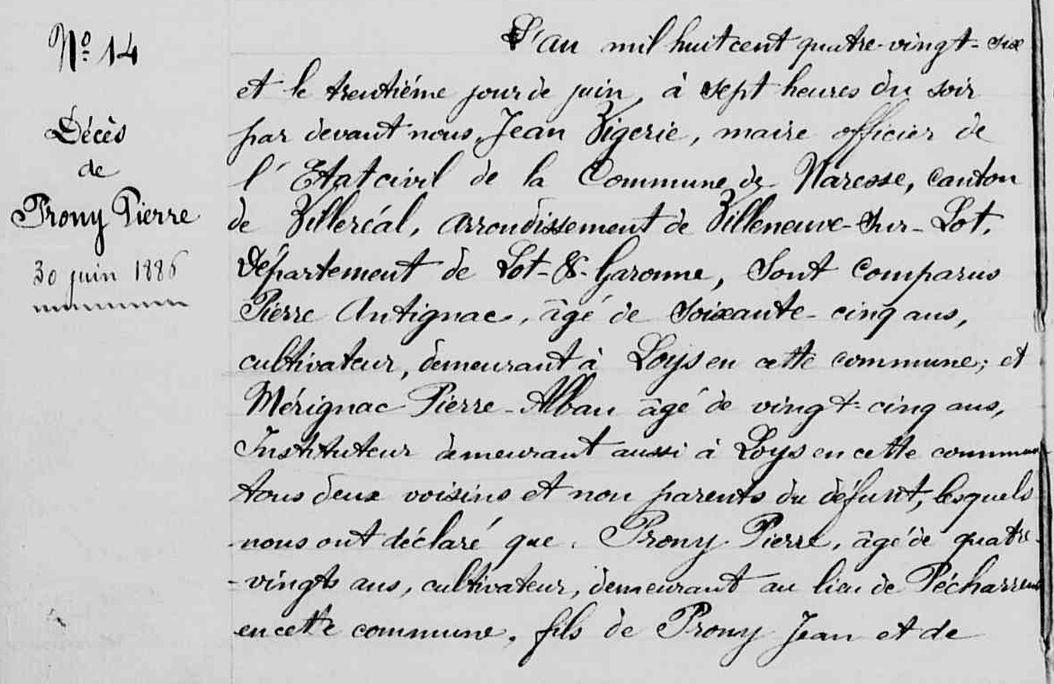 Nº 14
Décès
de
Prony Pierre
30 juin 1886
L'an mil huit cent quatre-vingt-six
et le trentième jour de juin, à sept heures du soir
par devant nous, Jean Vigerie, maire officier de
l'Etat civil de la Commune de Naresse, canton
de Villeréal, arrondissement de Villeneuve-sur-Lot,
Département de Lot-&-Garonne, sont comparus
Pierre Antignac, âgé de soixante-cinq ans,
cultivateur, demeurant à Loys en cette commune; et
Mérignac Pierre-Alban âgé de vingt-cinq ans,
Instituteur demeurant aussi à Loys en cette commune
tous deux voisins et non parents du défunt, lesquels
nous ont déclaré que Prony Pierre, âgé de quatre-
-vingts ans, cultivateur, demeurant au lieu de
en cette commune, fils de Prony Jean et de